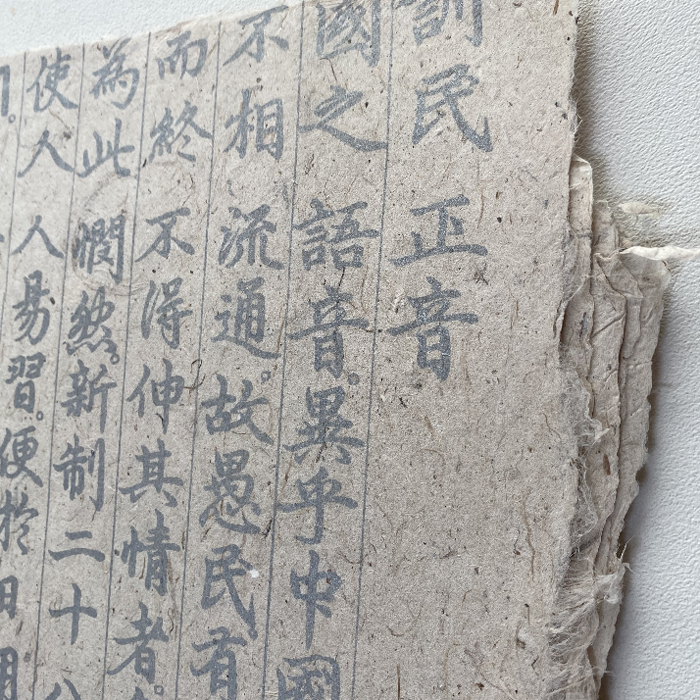 訓民正音
國之語音。異乎中國
不相流通。故愚民。有
而終不得伸其情者
為此憫然。新制二十八
使人人易習。便於日用